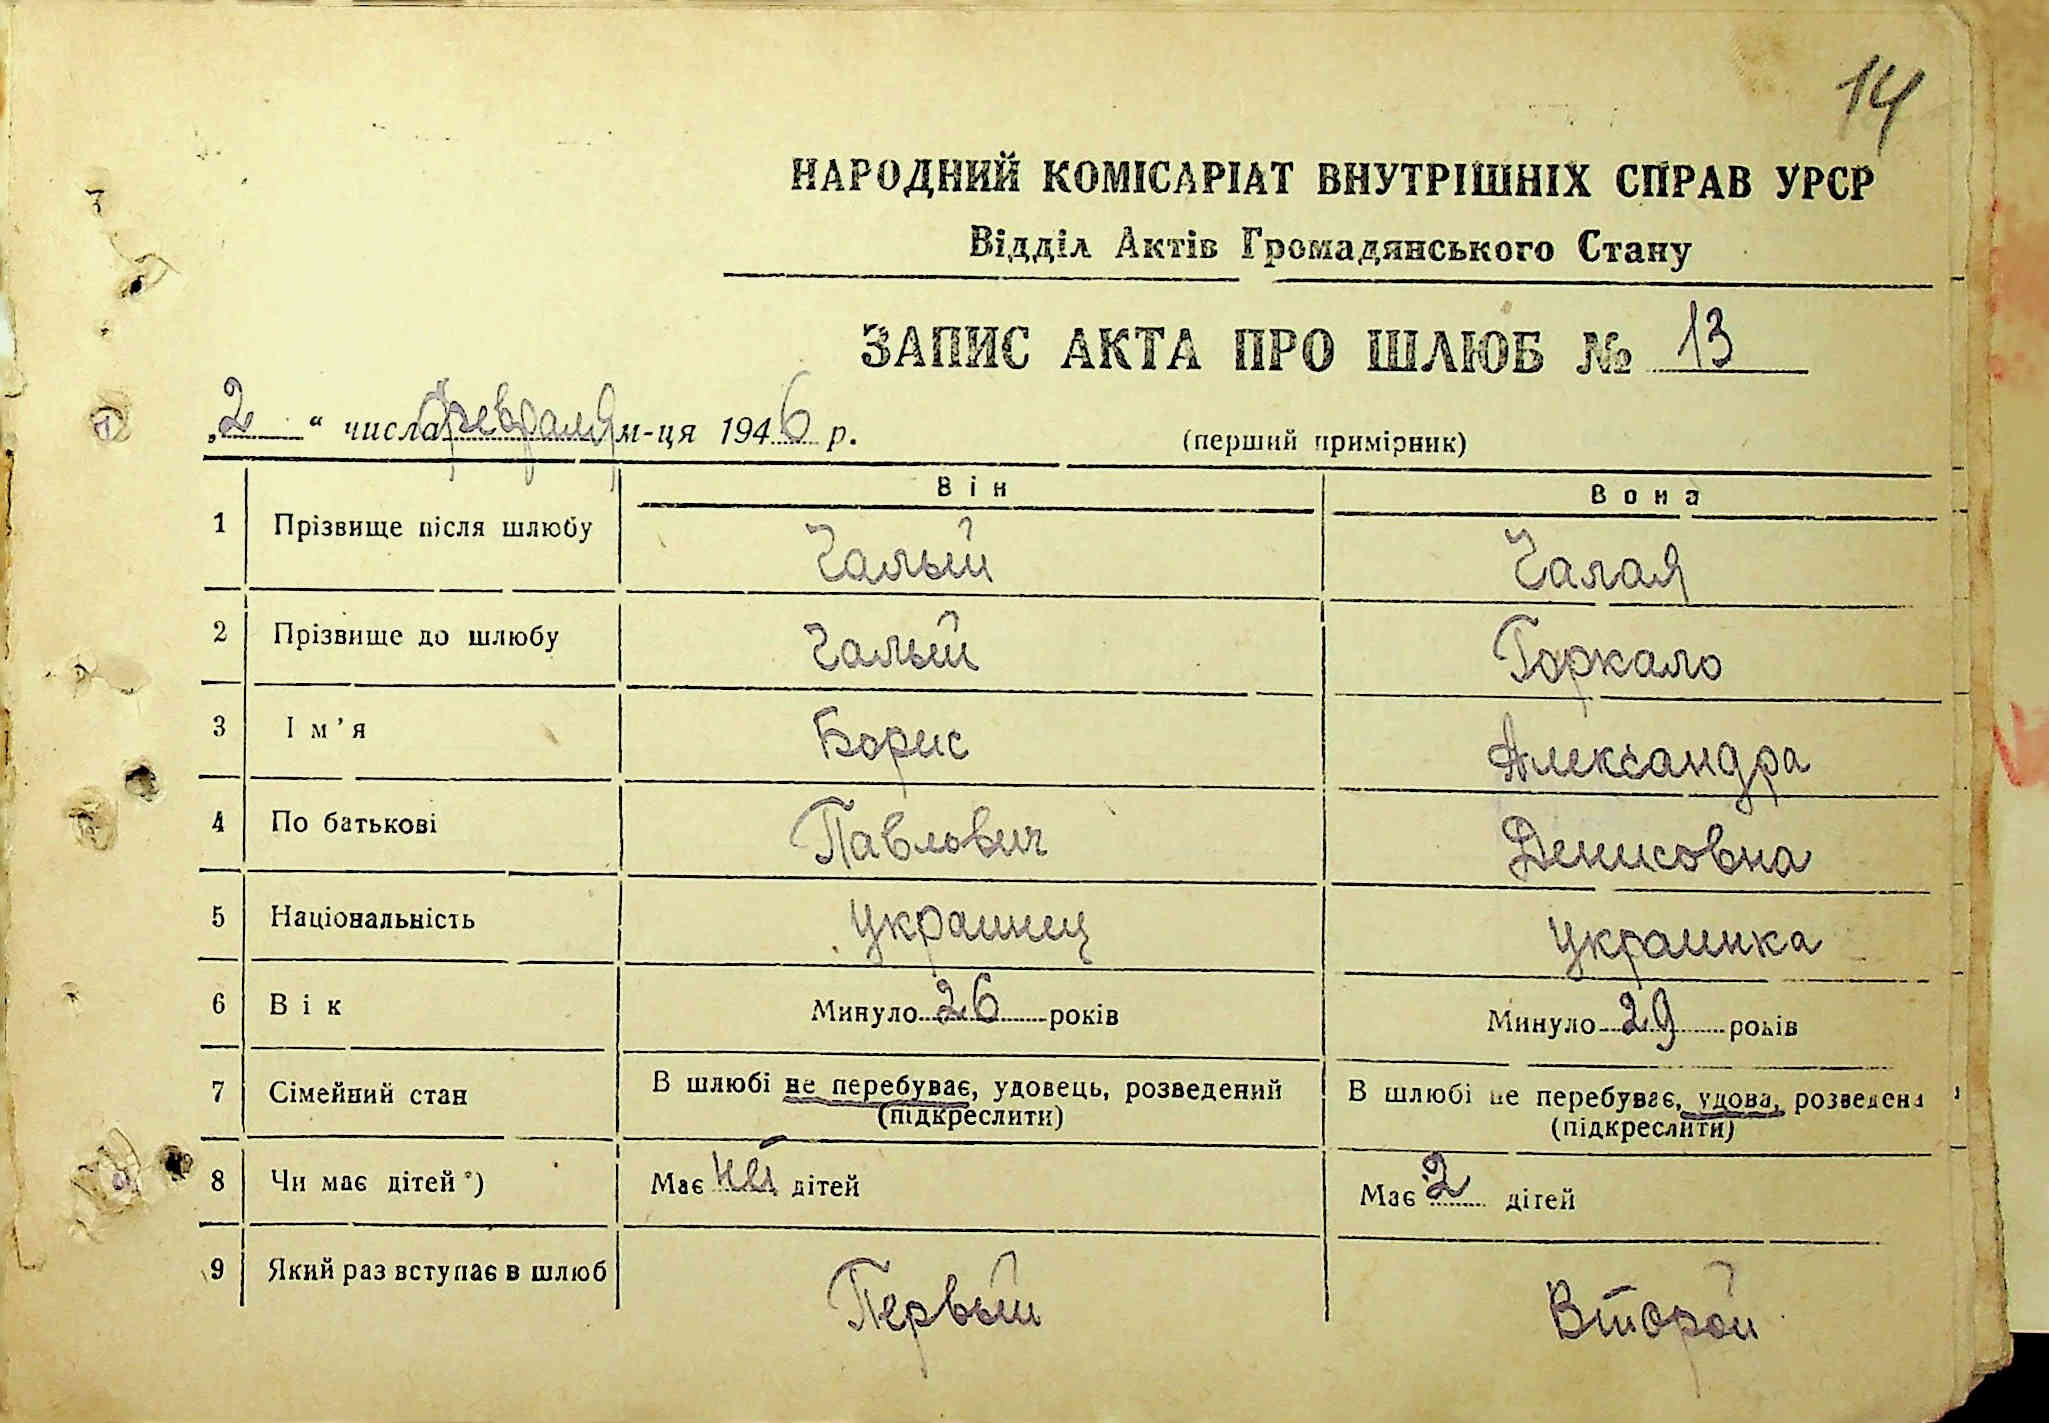 14
НАРОДНИЙ КОМІСАРІАТ ВНУТРІШНІХ СПРАВ УРСР
Відділ Актів Громадянського Стану
ЗАПИС АКТА ПРО ШЛЮБ № 13
„2“ числа февраля м-ця 1946 р. (перший примірник)
Він Вона
1 Прізвище після шлюбу Чалый Чалая
2 Прізвище до шлюбу Чалый Горкало
3 Ім’я Борис Александра
4 По батькові Павлович Денисовна
5 Національність украинец украинка
6 Вік Минуло 26 років Минуло 29 років
7 Сімейний стан В шлюбі не перебуває, удовець, розведений В шлюбі не перебуває, удова, розведена
(підкреслити) (підкреслити)
8 Чи має дітей *) Має дітей Має 2 дітей
9 Який раз вступає в шлюб Первый Второй